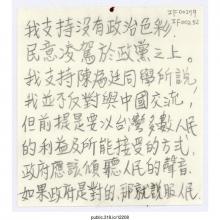 IF00259
IF00252
我支持沒有政治色彩,
民意凌駕於政黨之上。
我支持陳為廷同學所說,
我並不反對與中國交流,
但前提是要以台灣多數人民
的利益及所能接受的方式,
政府應該傾聽人民的聲音,
如果政府是對的,那就說服人民
public.318.io/12208